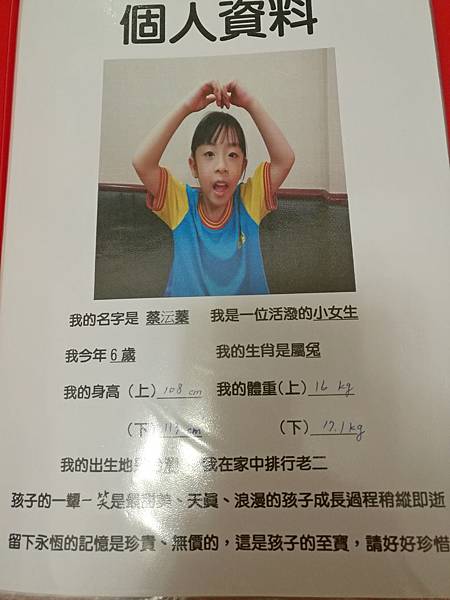 個人資料
我的名字是 蔡沄蓁 我是一位活潑的小女生
我今年6歲 我的生肖是屬兔
我的身高(上)108 cm 我的體重(上)16 kg
(下) cm (下)17.1kg
我的出生地 我在家中排行老二
孩子的一顰一笑是最甜美、天真、浪漫的孩子成長過程稍縱即逝
留下永恆的記憶是珍貴、無價的,這是孩子的至寶,請好好珍惜